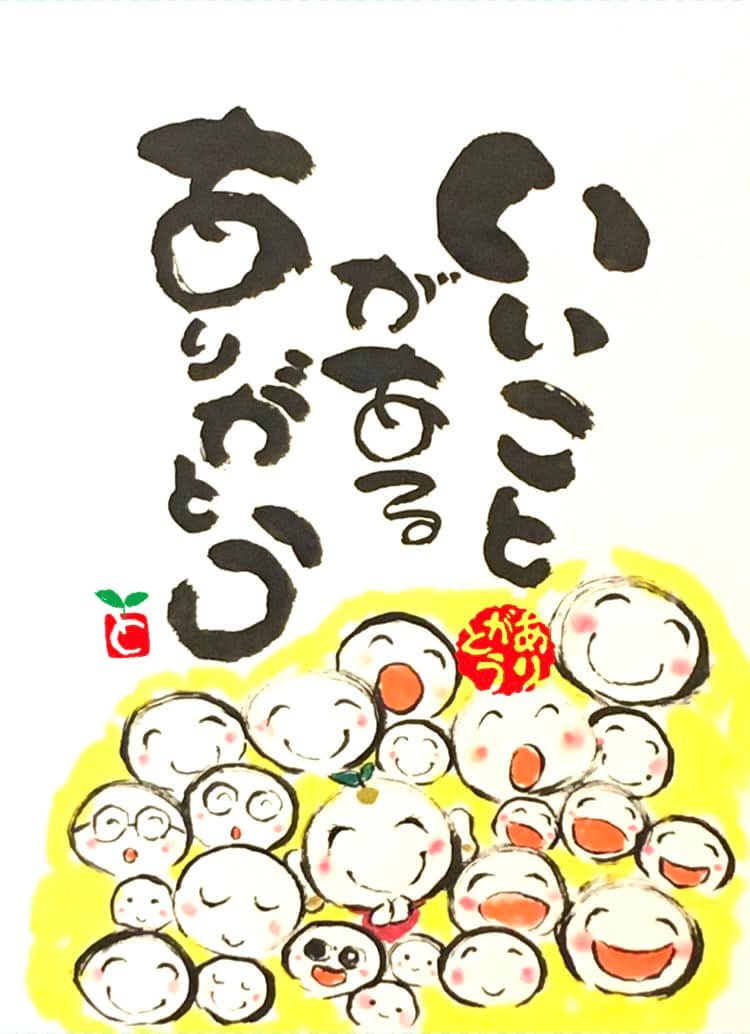 いいこと
がある
ありがとう
ありがとう
と